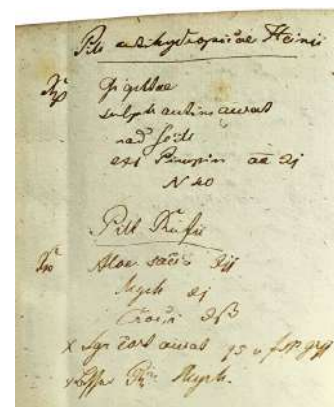 Pill antihydropicae Heinii
Rp Digittae
sulph antim aurat
rad Scill
ext Pimpin aa ʒj
N 40
Pill Rufii
Rp Aloe ʒij
Myrh ʒj
Croci ʒß
x Syr Cort aurat qs u f
x Myrh.